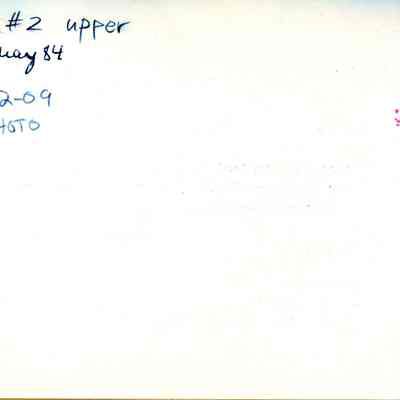 #2 upper
May 84
2-09
HOTO